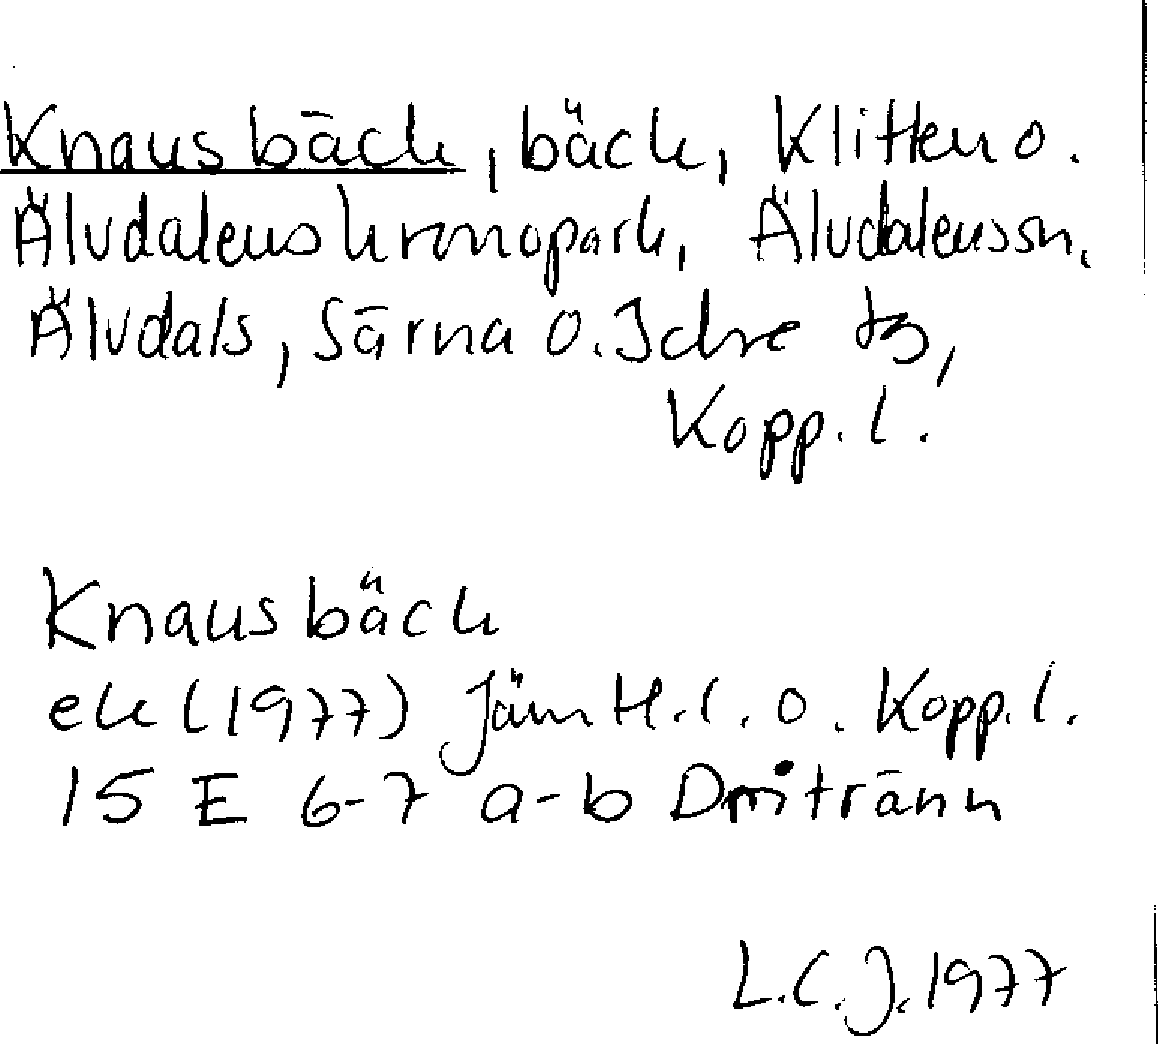 Knausbäck, bäck, Klitten o.
Älvdalens kronopark, Älvdalens sn,
Älvdals, Särna o. Idre tg,
Kopp. l.
Knausbäck
ek (1977) Jämtl. l. o. Kopp. l.
15 E 6-7 a-b
L.C.J. 1977